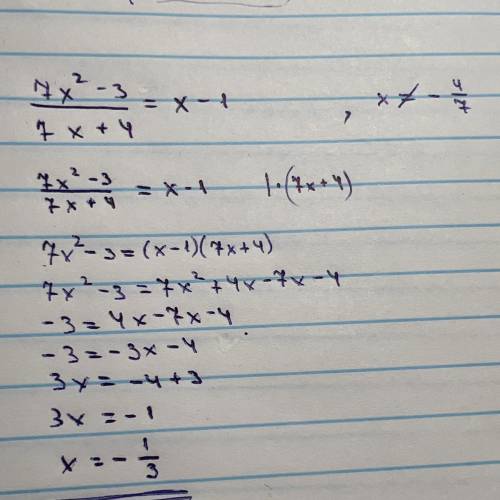 (7x² - 3)/(7x + 4) = x - 1 , x ≠ - 4/7
(7x² - 3)/(7x + 4) = x - 1 |·(7x + 4)
7x² - 3 = (x - 1)(7x + 4)
7x² - 3 = 7x² + 4x - 7x - 4
-3 = 4x - 7x - 4
-3 = -3x - 4
3x = -4 + 3
3x = -1
x = - 1/3